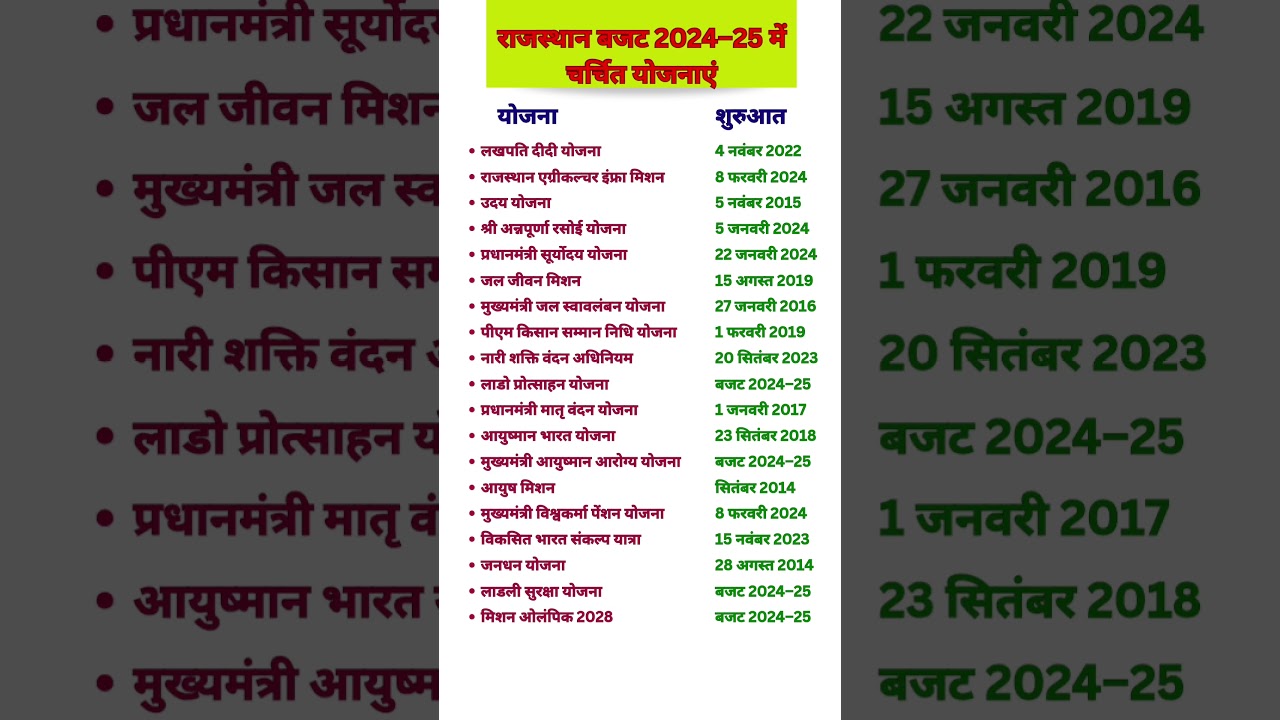 राजस्थान बजट 2024–25 में
चर्चित योजनाएं
योजना शुरुआत
• लखपति दीदी योजना 4 नवंबर 2022
• राजस्थान एग्रीकल्चर इंफ्रा मिशन 8 फरवरी 2024
• उदय योजना 5 नवंबर 2015
• श्री अन्नपूर्णा रसोई योजना 5 जनवरी 2024
• प्रधानमंत्री सूर्योदय योजना 22 जनवरी 2024
• जल जीवन मिशन 15 अगस्त 2019
• मुख्यमंत्री जल स्वावलंबन योजना 27 जनवरी 2016
• पीएम किसान सम्मान निधि योजना 1 फरवरी 2019
• नारी शक्ति वंदन अधिनियम 20 सितंबर 2023
• लाडो प्रोत्साहन योजना बजट 2024–25
• प्रधानमंत्री मातृ वंदन योजना 1 जनवरी 2017
• आयुष्मान भारत योजना 23 सितंबर 2018
• मुख्यमंत्री आयुष्मान आरोग्य योजना बजट 2024–25
• आयुष मिशन सितंबर 2014
• मुख्यमंत्री विश्वकर्मा पेंशन योजना 8 फरवरी 2024
• विकसित भारत संकल्प यात्रा 15 नवंबर 2023
• जनधन योजना 28 अगस्त 2014
• लाडली सुरक्षा योजना बजट 2024–25
• मिशन ओलंपिक 2028 बजट 2024–25
• प्रधानमंत्री 22 जनवरी 2024
• जल जीवन मिशन 15 अगस्त 2019
• मुख्यमंत्री जल 27 जनवरी 2016
• पीएम किसान 1 फरवरी 2019
• नारी शक्ति वंदन 20 सितंबर 2023
• लाडो प्रोत्साहन बजट 2024–25
• प्रधानमंत्री मातृ 1 जनवरी 2017
• आयुष्मान भारत 23 सितंबर 2018
• मुख्यमंत्री बजट 2024–25